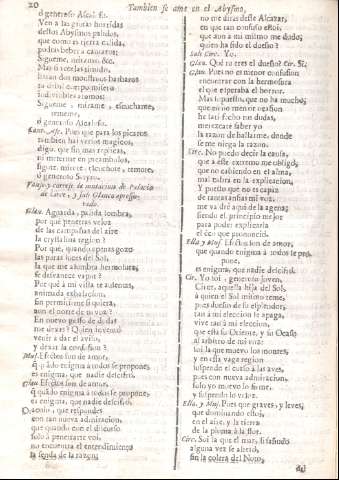 20
Tambien se ama en el Abysmo,
ò generoso Ascalafo.
Ven a las grutas
destos Abysmos palidos,
que
puedes beber a cantaros:
Sigueme, mirame, &c.
Mas si rezelas timido,
sean dos monstruos barbaros
Sigueme, mirame, escuchame,
remoto,
ò generoso Ascalafo.
Pues que para los picaros
tambien hai versos magicos,
digo, que sin mas replicas,
ni meterme en preambulos,
sigote, mirote, escuchote,
ò generoso
Vase, y correse la mutacion de Palacio
de Circe, y sale Glauco apressurado.
Glau. Aguarda, palida sombra,
por què penetras veloz
de las campañas del aire
la crystalina region?
Por què, quando apenas gozo
las puras luces del Sol,
la que me alumbra hermosura,
se desvanece vapor?
Por què à mi vista te ausentas,
animada exhalacion,
sin permitirme siquiera,
aun el norte de tu voz?
En nuevo golfo de dudas
me dexas? Quien
venir a dar el aviso,
y dexar la confusion?
Mus. Efectos son de amor,
q̃ quãdo enigma à todos se propone,
es enigma, que nadie descifrò.
Glau. Efectos son de amor,
q̃ quãdo enigma à todos se propone,
es enigma, que nadie descifrò.
O acento, que respondes
con tan nueva admiracion,
que quando con el discurso
solo à penetrarte voi,
no encuentra el entendimiento
la senda de la razon;
no me diràs deste Alcazar,
en que tan confuso estoi,
que aun à mi mismo me dudo,
quien ha sido el dueño?
Sale Circe. Yo.
Glau. Què tu eres el dueño? Cir. Si.
Glau. Pues no es menor confusion
encontrar con la hermosura
el que esperaba el horror.
Mas supuesto, que no ha mucho,
que ni en menor ocasion
he sido hecho mis dudas,
merezcate saber yo
la razon de hallarme, donde
se me niega la razon.
Cir. No puedo decir la causa,
que à este extremo me obligò,
que no cabiendo en el alma,
mal cabrà en la explicacion,
Y puesto que no es capàz
de tantas ansias mi voz,
me valdrè aqui de la agena;
siendo el principio mejor
para poder explicarla
el decir que pronunciò.
Ella y Mus. Efectos son de amor,
que quando enigma à todos se propone,
es enigma, que nadie descifrò.
Cir. Yo soi, generoso joven,
Circe, aquella hija del Sol,
à quien el Sol mismo teme,
pues dueño de su esplendor,
tan à mi eleccion le apaga,
vive tan à mi eleccion,
que està su Oriente, y su Ocaso
al arbitrio de mi voz:
soi la que muevo los montes,
y en esta vaga region
suspendo el curso à las aves,
pues con nueva admiracion,
solo yo muevo lo firme,
y suspendo lo veloz.
Ella, y Mus. Pues que graves, y leves,
que dominando estoi,
en el aire, y la tierra
de la pluma à la flor.
Circ. Soi la que el mar, si sañudo
alguna vez se alterò,
sin la colera del Noto,